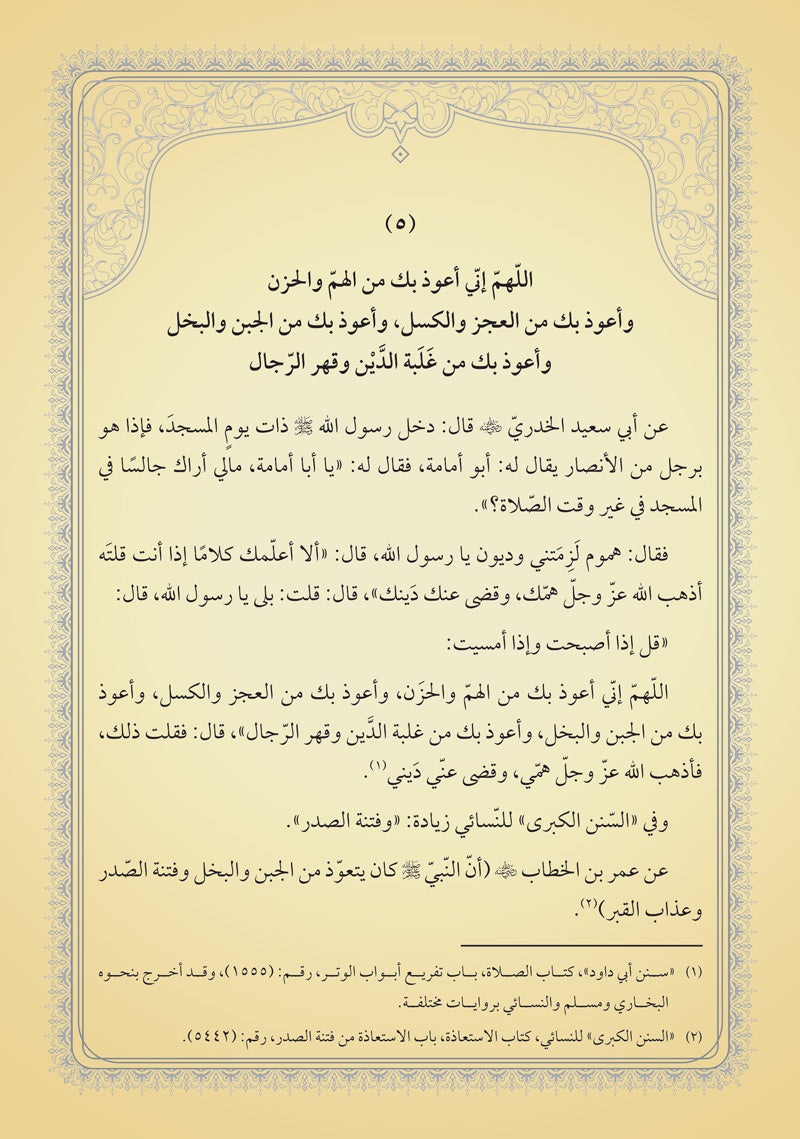 (٥)
اللّهمّ إنّي أعوذ بك من الهمّ والحزن
وأعوذ بك من العجز والكسل، وأعوذ بك من الجبن والبخل
وأعوذ بك من غَلَبة الدَّيْن وقهر الرّجال
عن أبي سعيد الخدريّ رضي الله عنه قال: دخل رسول الله ﷺ ذات يومٍ المسجدَ، فإذا هو
برجل من الأنصار يقال له: أبو أمامة، فقال له: «يا أبا أمامة، مالي أراك جالسًا في
المسجد في غير وقت الصّلاة؟».
فقال: هموم لَزِمَتني وديون يا رسول الله، قال: «ألا أعلّمك كلامًا إذا أنت قلتَه
أذهب الله عزّ وجلّ همّك، وقضى عنك دَينك»، قال: قلت: بلى يا رسول الله، قال:
«قل إذا أصبحت وإذا أمسيت:
اللّهمّ إنّي أعوذ بك من الهمّ والحزَن، وأعوذ بك من العجز والكسل، وأعوذ
بك من الجبن والبخل، وأعوذ بك من غلبة الدَّين وقهر الرّجال»، قال: فقلت ذلك،
فأذهب الله عزّ وجلّ همّي، وقضى عنّي دَيني(١).
وفي «السّنن الكبرى» للنّسائي زيادة: «وفتنة الصدر».
عن عمر بن الخطاب رضي الله عنه (أنّ النّبيّ ﷺ كان يتعوّذ من الجبن والبخل وفتنة الصّدر
وعذاب القبر)(٢).
(١) «سـنن أبي داود»، كتـاب الصـلاة، بـاب تفريـع أبـواب الوتـر، رقـم: (١٥٥٥)، وقـد أخـرج بنحـوه
البخـاري ومسـلم والنسـائي بروايـات مختلفـة.
(٢) «السنن الكبرى» للنسائي، كتاب الاستعاذة، باب الاستعاذة من فتنة الصدر، رقم: (٥٤٤٢).